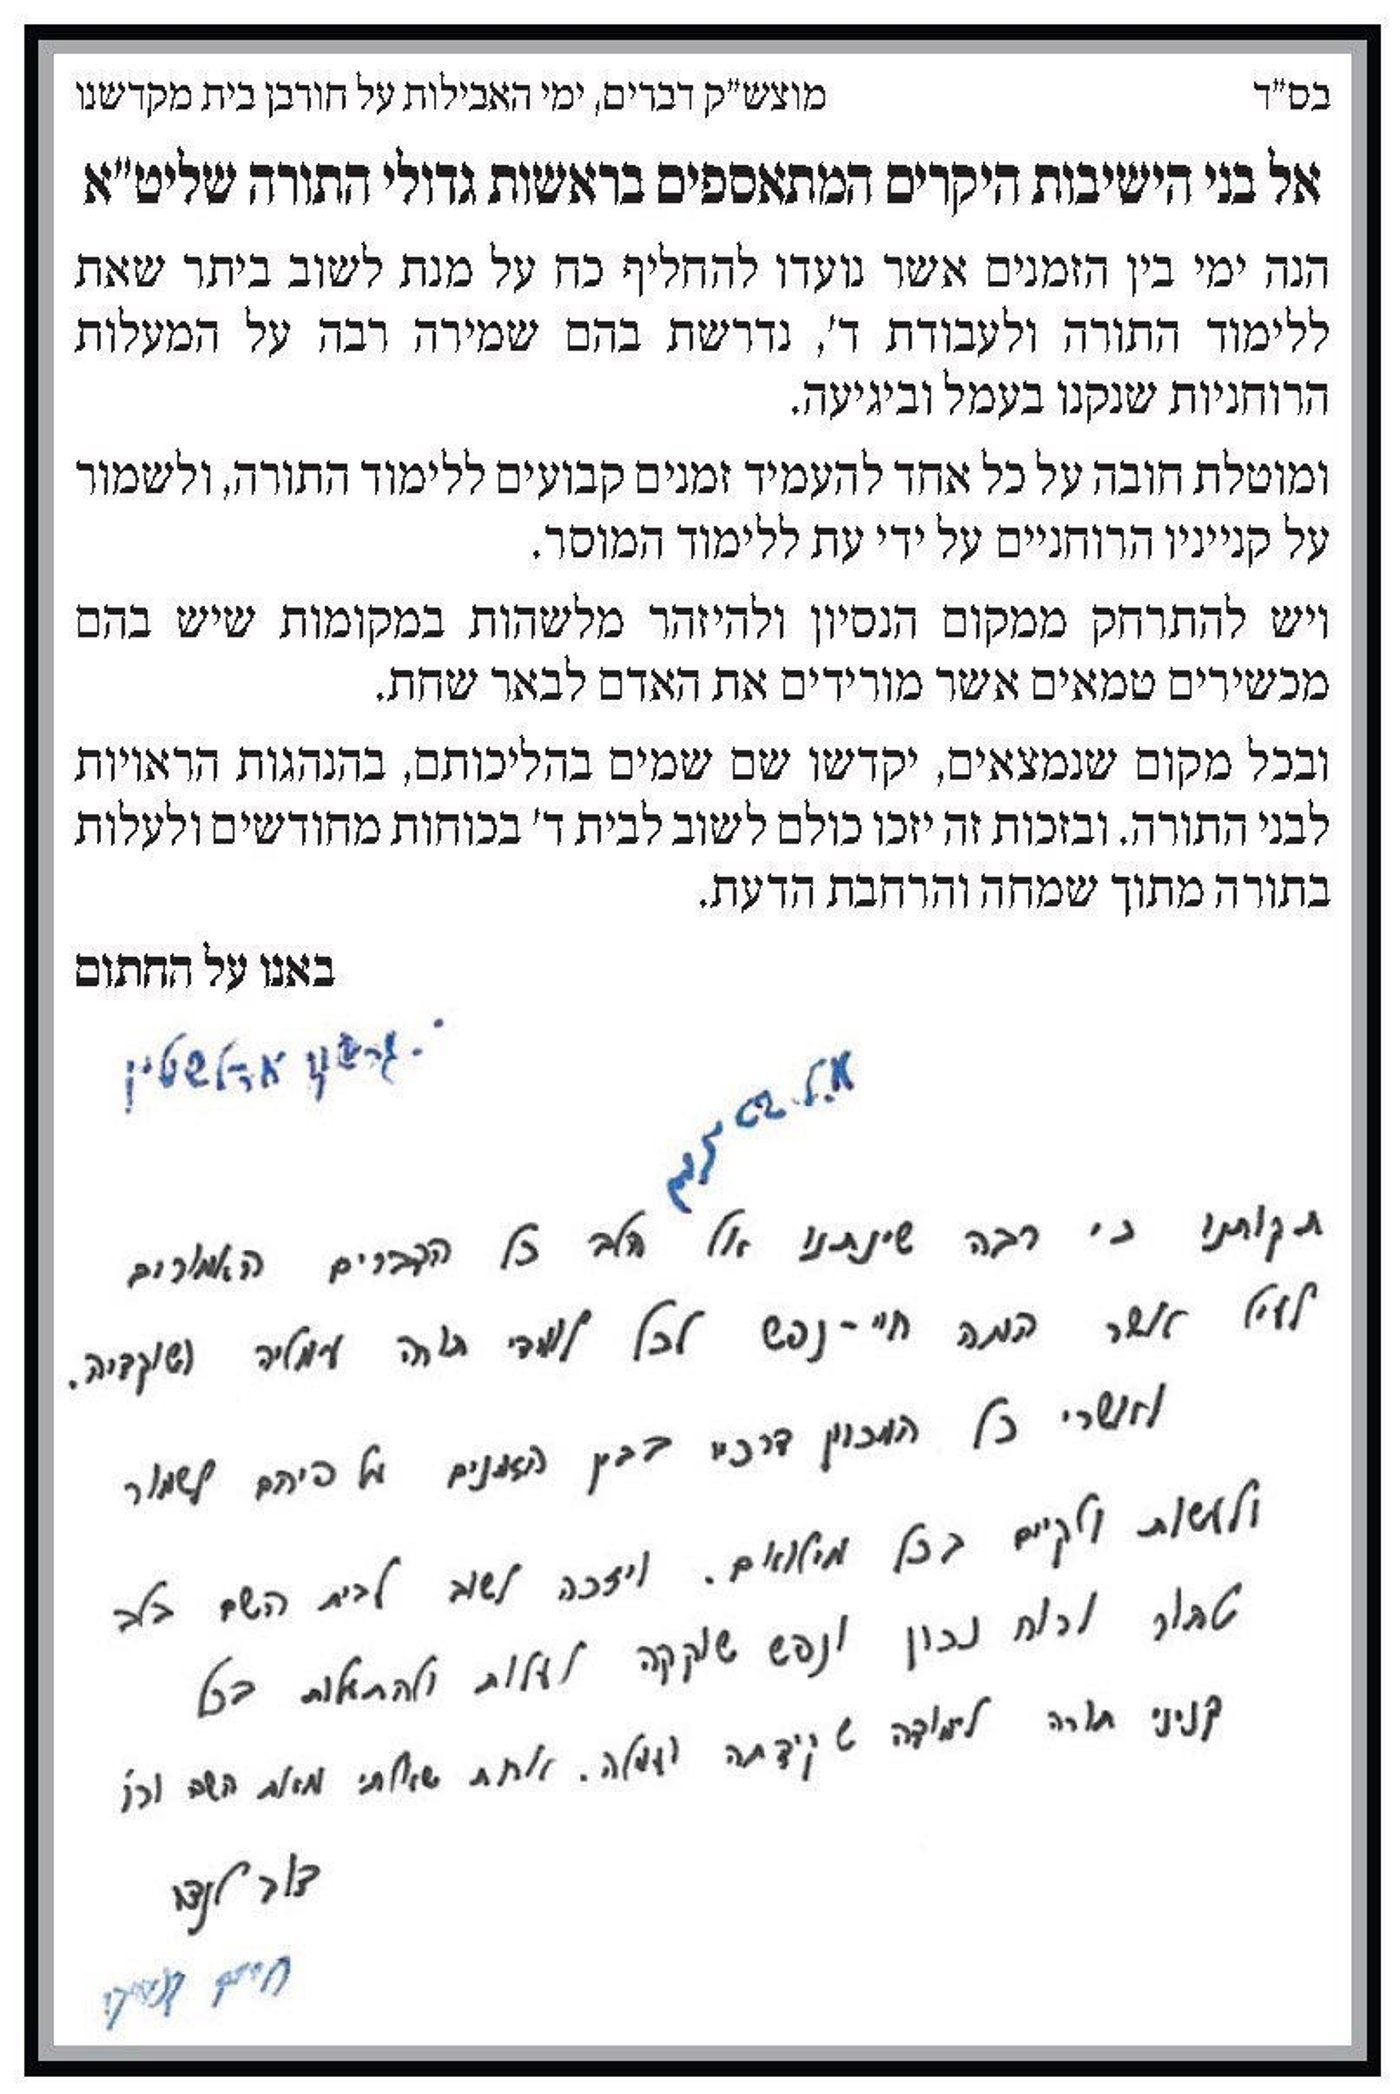 בס"ד מוצש"ק דברים, ימי האבילות על חורבן בית מקדשנו
אל בני הישיבות היקרים המתאספים בראשות גדולי התורה שליט"א
הנה ימי בין הזמנים אשר נועדו להחליף כח על מנת לשוב ביתר שאת
ללימוד התורה ולעבודת ד', נדרשת בהם שמירה רבה על המעלות
הרוחניות שנקנו בעמל וביגיעה.
ומוטלת חובה על כל אחד להעמיד זמנים קבועים ללימוד התורה, ולשמור
על קנייניו הרוחניים על ידי עת ללימוד המוסר.
ויש להתרחק ממקום הנסיון ולהיזהר מלשהות במקומות שיש בהם
מכשירים טמאים אשר מורידים את האדם לבאר שחת.
ובכל מקום שנמצאים, יקדשו שם שמים בהליכותם, בהנהגות הראויות
לבני התורה. ובזכות זה יזכו כולם לשוב לבית ד' בכוחות מחודשים ולעלות
בתורה מתוך שמחה והרחבת הדעת.
באנו על החתום
גרשון אדלשטין
תקותנו כי רבה שינתנו אל הלב כל הדברים האמורים
לעיל אשר המה חיי-נפש לכל לומדי תורה עמליה ושוקדיה.
ואשרי כל המכוין דרכיו בבין הזמנים על פיהם לשמור
ולעשות ולקיים בכל מילואם. ויזכה לשוב לבית השם בלב
טהור ורוח נכון ונפש שוקקה לעלות ולהתעלות בכל
קניני תורה לימודה שקידתה ועמלה. אחת שאלתי מאת השם וכו'
דוב לנדו
חיים קניבסקי